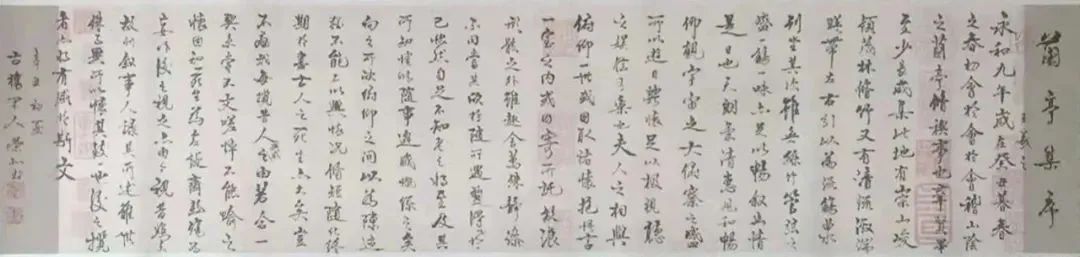 蘭亭集序
王羲之
永和九年歲在癸丑暮春
之春初會於會於會稽山陰
之蘭亭修禊事也羣賢畢
至少長咸集此地有崇山峻
領茂林修竹又有清流激湍
暎帶左右引以為流觴曲水
列坐其次雖無絲竹管弦之
盛觴一詠亦足以暢敘幽情
是日也天朗氣清惠風和暢
仰觀宇宙之大俯察之盛
所以遊目騁懷足以極視聽
之娛信可樂也夫人之相與
俯仰一世或因取諸懷抱悟言
一室之內或因寄所託放浪
形骸之外雖趣舍萬殊靜躁
不同當其欣於所遇暫得於
己怏然自足不知老之將至及其
所之既惓情隨事遷感慨係之矣
向之所欣俯仰之間以為陳迹
猶不能不以興懷況脩短隨化終
期於盡古人云死生亦大矣豈
不痛哉每攬昔人興感之由若合一
契未嘗不文嗟悼不能喻之
懷固知死生為虛誕齊彭殤為
妄作後之視今亦由今之視昔悲夫
故列敘時人錄其所述雖世
殊事異所以懷其致一也後之攬
者亦將有感於斯文
辛丑初夏